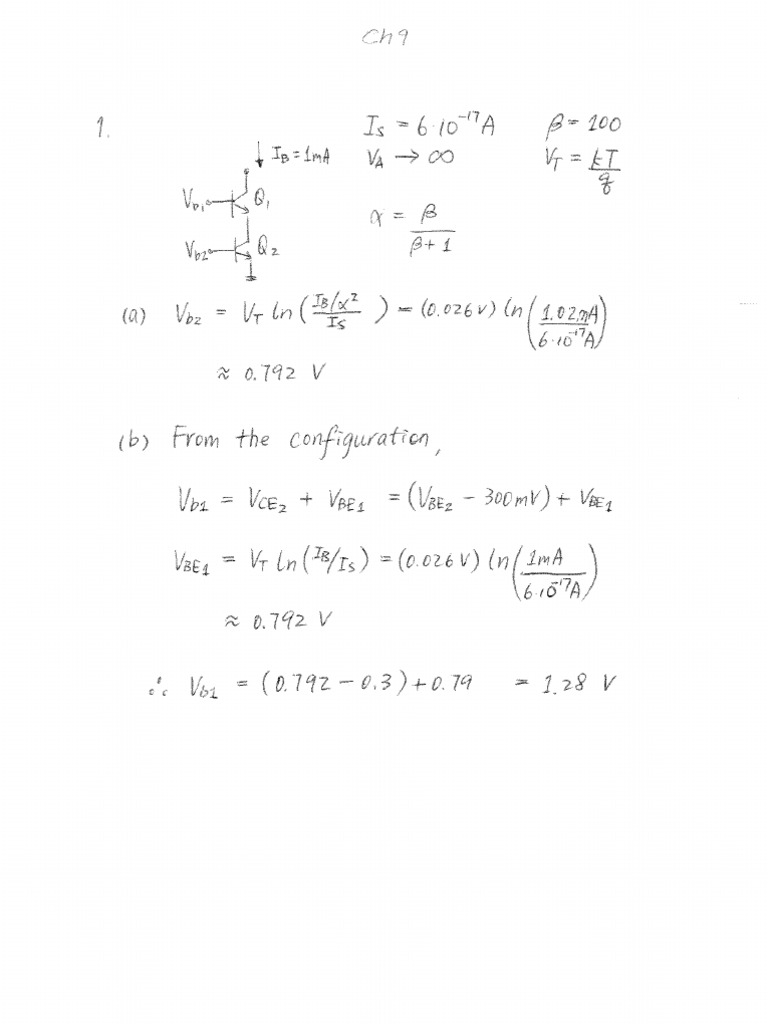 Ch 9
1.
I_S = 6·10^-17 A β = 100
I_B = 1mA V_A → ∞ V_T = kT/q
V_b1 Q_1
α = β/(β+1)
V_b2 Q_2
(a) V_b2 = V_T ln((I_B/α^2)/I_S) = (0.026 V) ln(1.02mA/(6·10^-17 A))
≈ 0.792 V
(b) From the configuration,
V_b1 = V_CE2 + V_BE1 = (V_BE2 − 300mV) + V_BE1
V_BE1 = V_T ln(I_B/I_S) = (0.026 V) ln(1mA/(6·10^-17 A))
≈ 0.792 V
∴ V_b1 = (0.792 − 0.3) + 0.79 = 1.28 V